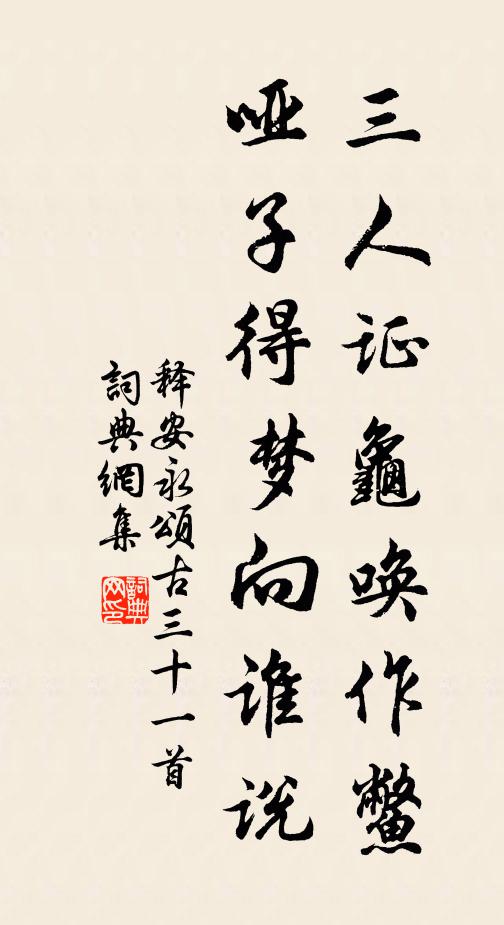 三人证龜唤作鱉
哑子得梦向谁说
释安永頌古三十一首
詞典網集
詞典
网印